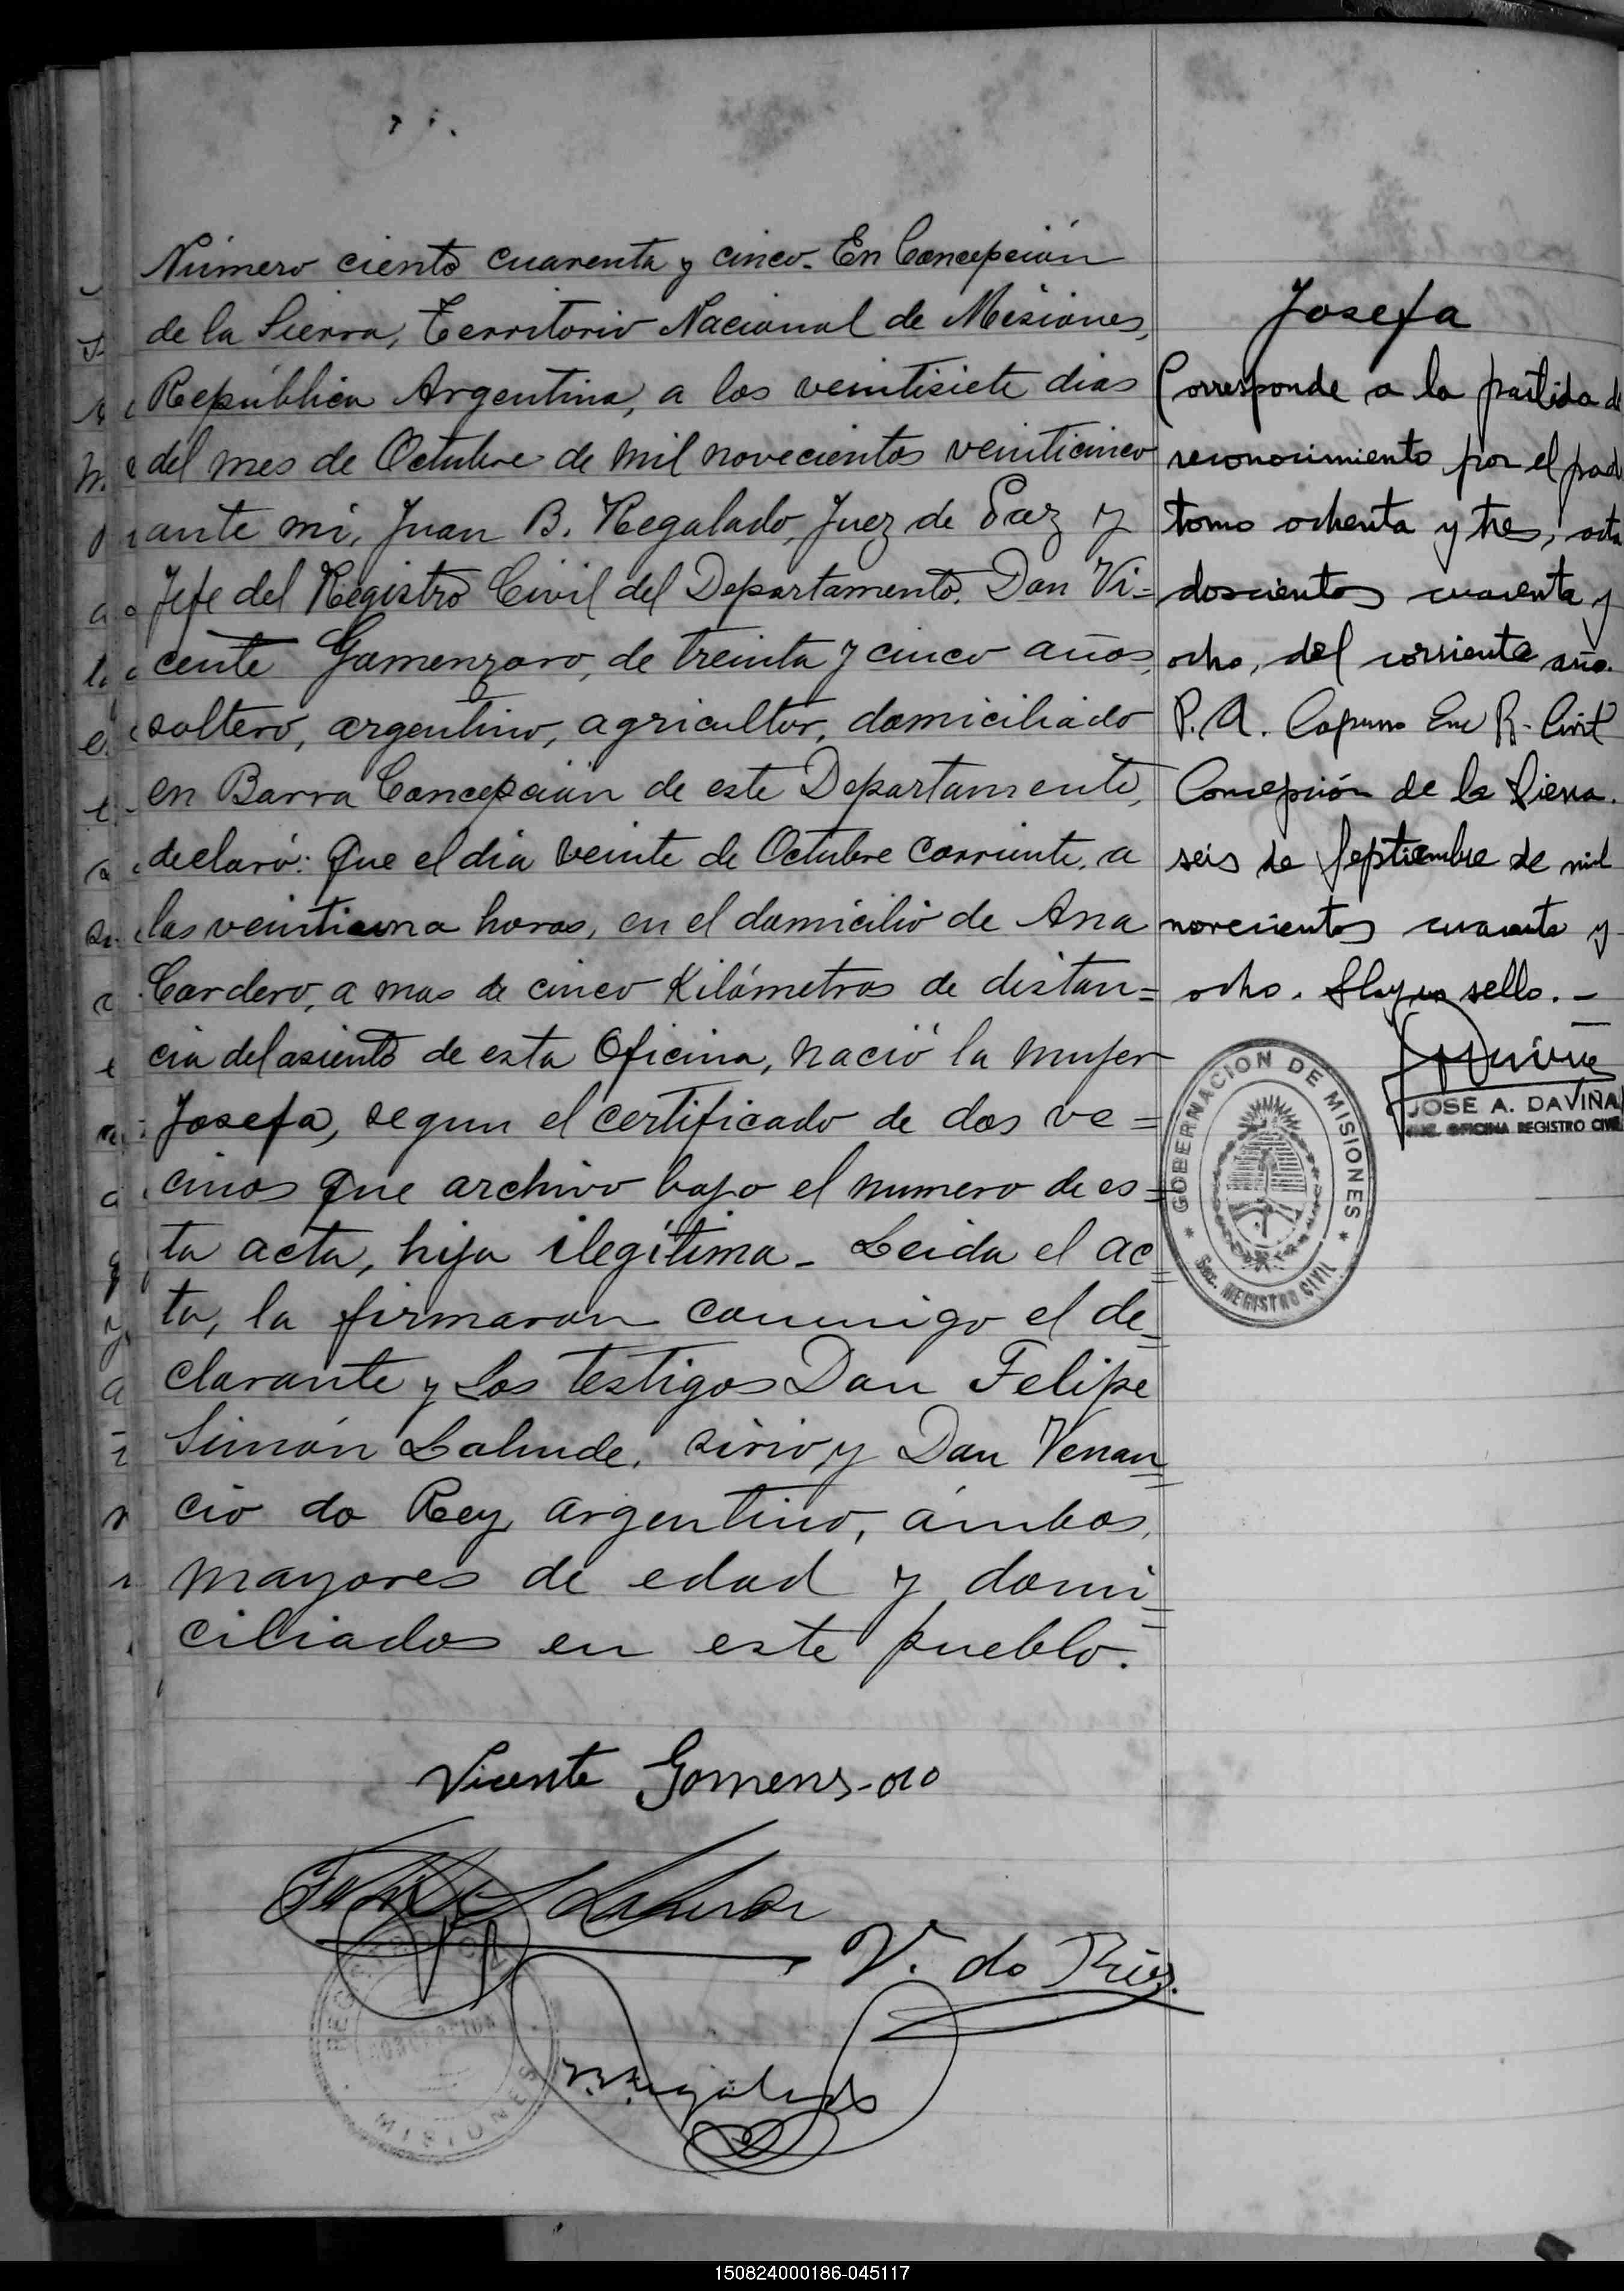 Número ciento cuarenta y cinco. En Concepción
de la Sierra, Territorio Nacional de Misiones,
República Argentina, a los veintisiete dias
del mes de Octubre de mil novecientos veinticinco
ante mi, Juan B. Regalado, Juez de Paz y
Jefe del Registro Civil del Departamento. Don Vi=
cente Gomenzoro, de treinta y cinco años,
soltero, argentino, agricultor, domiciliado
en Barra Concepción de este Departamento,
declaró: Que el dia veinte de Octubre corriente, a
las veintiuna horas, en el domicilio de Ana
Cordero, a mas de cinco Kilómetros de distan=
cia del asiento de esta Oficina, nació la mujer
Josefa, segun el certificado de dos ve=
cinos que archivo bajo el numero de es=
ta acta, hija ilegítima. Leida el ac=
ta, la firmaron conmigo el de=
clarante y los testigos Don Felipe
Simón Lahude, sirio y Don Venan=
cio do Rey, argentino, ámbos,
mayores de edad y domi=
ciliados en este pueblo.
Vicente Gomens-oro
V. do Rey
Josefa
Corresponde a la partida d
reconocimiento por el pad
tomo ochenta y tres, acta
doscientos cuarenta y
ocho, del corriente año.
P. A. Enc R. Civil
Concepción de la Sierra.
seis de Septiembre de mil
novecientos cuarenta y
ocho. Hay un sello.-
JOSE A. DAVIÑA
OFICINA REGISTRO CIVIL
GOBERNACION DE MISIONES
Sec. REGISTRO CIVIL
MISIONES
150824000186-045117